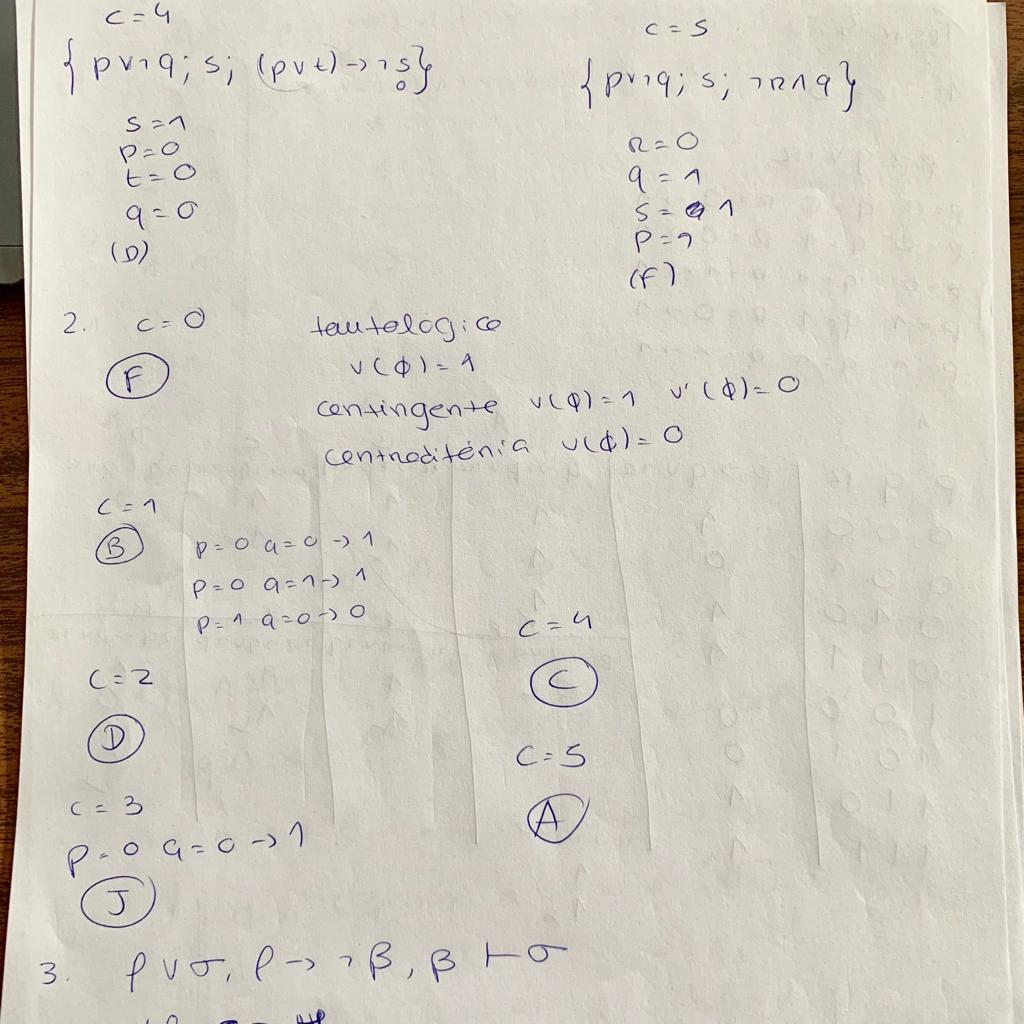 c=4
{ p∨¬q; s; (p∨t)→¬s}
0
s=1
p=0
t=0
q=0
(D)
c=5
{ p∨¬q; s; ¬r∧q}
r=0
q=1
s=1
p=1
(F)
2. c=0
F
tautológico
v(φ)=1
contingente v(φ)=1 v'(φ)=0
contraditória v(φ)=0
c=1
B
p=0 q=0→1
p=0 q=1→1
p=1 q=0→0
c=2
D
c=3
p=0 q=0→1
J
c=4
C
c=5
A
3. ρ∨σ, ρ→¬β, β⊢σ